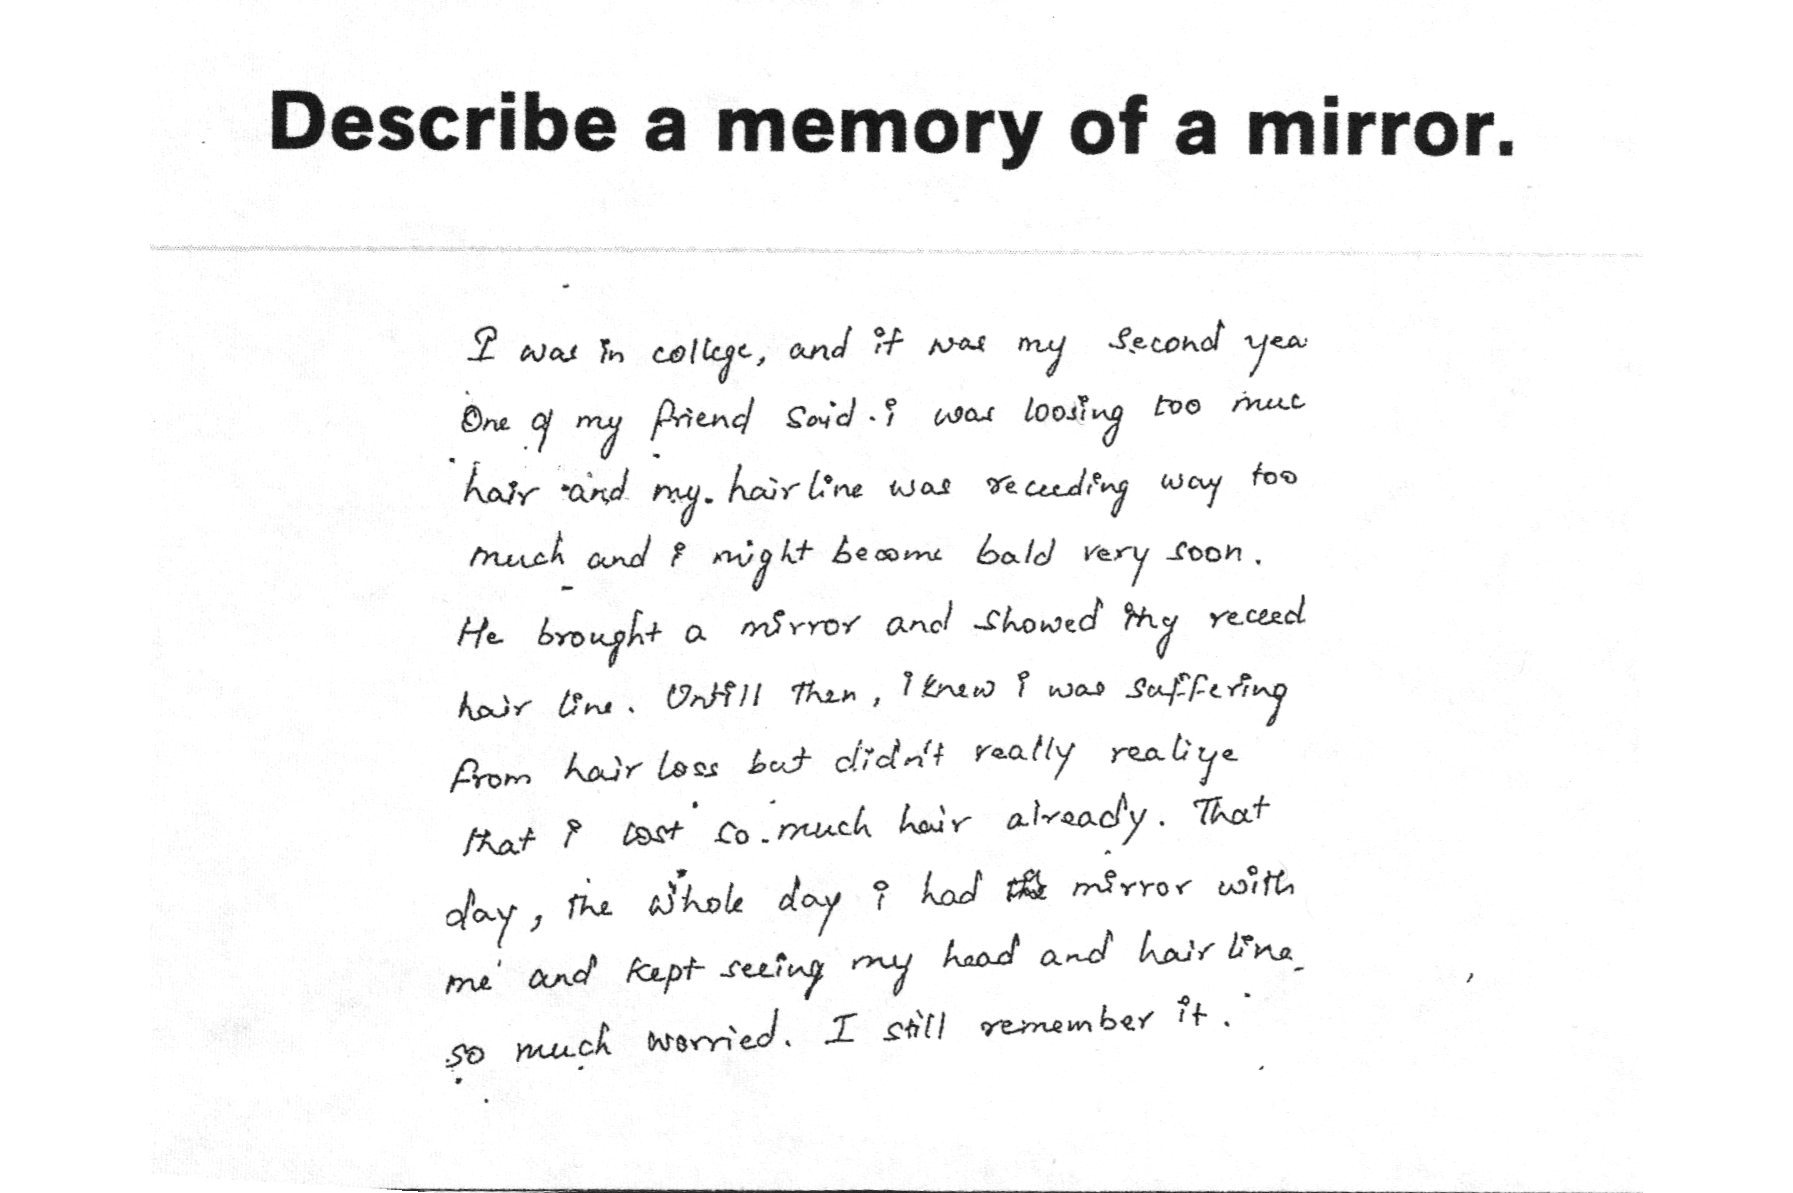 Describe a memory of a mirror.
I was in college, and it was my second yea
One of my friend said. i was loosing too muc
hair and my hair line was receeding way too
much and i might become bald very soon.
He brought a mirror and showed my receed
hair line. Untill then, i knew i was suffering
from hair loss but didn't really realize
that i lost so much hair already. That
day, the whole day i had the mirror with
me and kept seeing my head and hair line
so much worried. I still remember it.